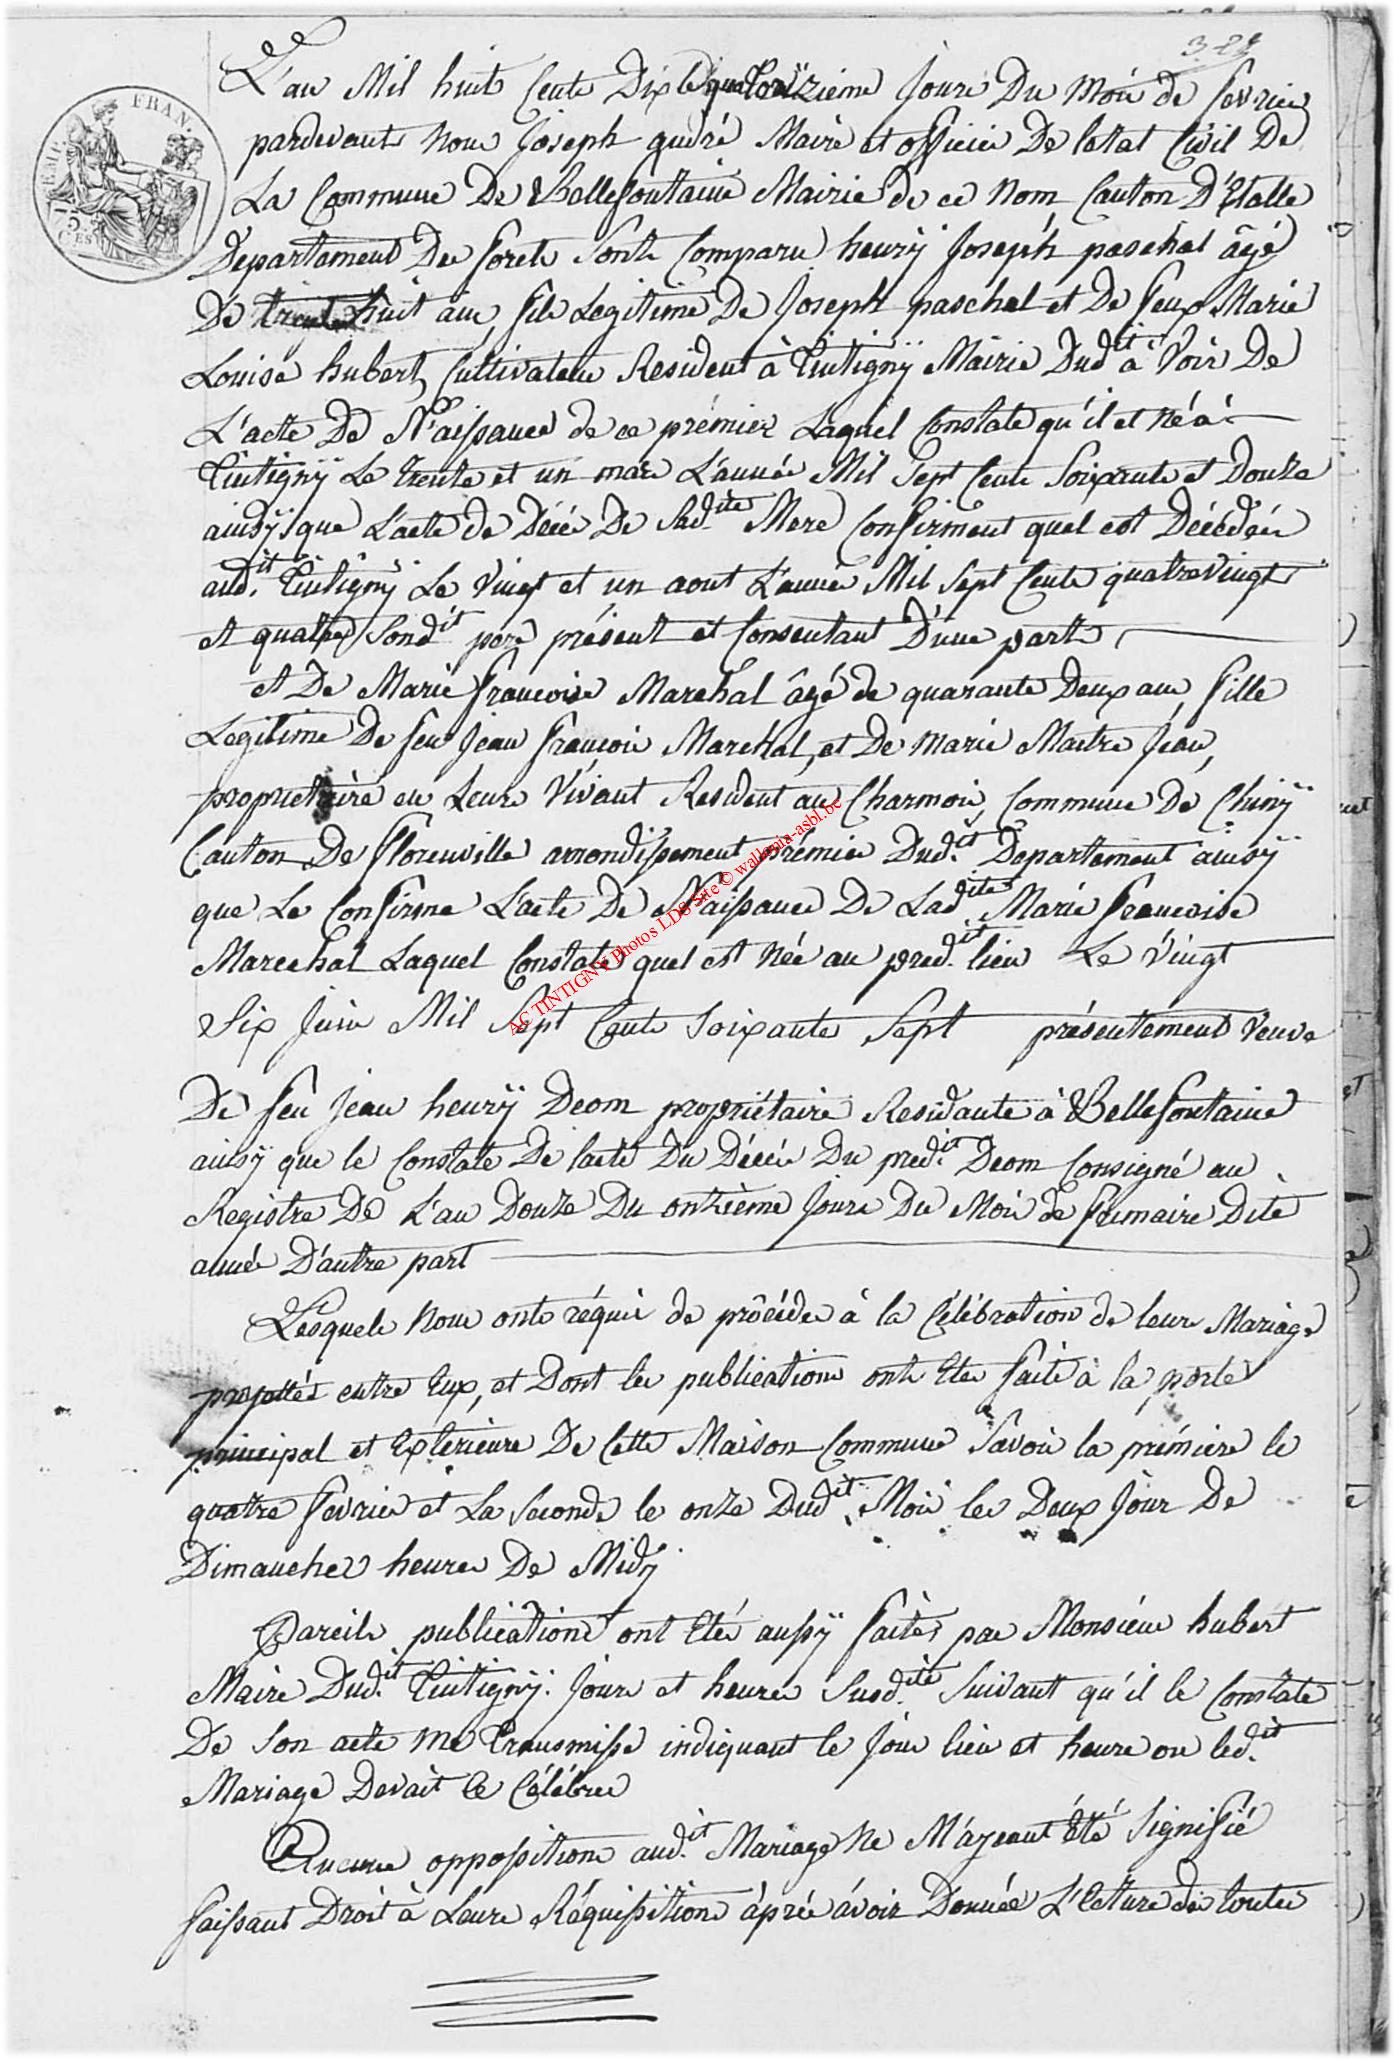 324
L'an Mil huit Cents Dix le quatorzieme Jours Du mois de fevrier
pardevant nous Joseph gudré Maire et officier De letat Civil De
La Commune De Bellefontaine Mairie de ce Nom Canton D'Etalle
Departement Des forets Sonts Comparu henrÿ Joseph paschal âgé
De trente huit ans, fils Legitime De Joseph paschal et De feux Marie
Louise hubert, Cultivateur Resident à Tintignÿ Mairie Dudit à Voir De
L'acte De Naissance de ce prémier Laquel Constate qu'il et né à
Tintignÿ Le trente et un mars L'année Mil Sept Cents Soixante et Douze
ainsÿ que L'acte de Décés De Sadite Mere Confirment quel est Décédée
audit Tintignÿ Le Vingt et un aout L'année Mil Sept Cents quatre vingts
et quatre Sondit pere présent et Consentant D'une parts
et De Marie francoise Marchal âgé de quarante Deux ans, fille
Legitime De feu Jean françois Marchal, et De Marie Maitre Jean,
proprietaire en Leurs Vivant Resident au Charmois, Commune De Chinÿ
Canton De florenville arrondissement prémier Dudit Departement ainsÿ
que Le Confirme L'acte De Naissance De Ladite Marie francoise
Marechal Laquel Constate quel est née au predit lieu Le Vingt
Six Juin Mil Sept Cents Soixante Sept présentement Veuve
De feu Jean henrÿ Deom propriétaire Residante à Bellefontaine
ainsÿ que le Constate De lacte Du Décés Du predit Deom Consigné au
Registre De L'an Douze Du onzième Jours Du Mois de frimaire Dite
année D'autre part
Lesquels Nous onts réquis de procéder à la Célébration de leurs Mariage
projettés entre Eux, et Dont les publications onts Etes faite à la porte
principal et Exterieure De Cette Maison Commune Savoir la prémiere le
quatre fevrier et La Seconde le onze Dudit Mois les Deux Jour De
Dimanches heures De Midÿ
Pareils publications ont Etés aussÿ faites par Monsieur hubert
Maire Dudit Tintignÿ. Jours et heures Susdite Suivant qu'il le Constate
De Son acte me transmisse indiquant le Jour lieu et heure ou ledit
Mariage Devait Ce Célébrer
Aucune opposition audit Mariage Ne M'ayeant Été Signifié
faissant Droit à Leurs Réquisition après avoir Donnée L'Ecture de toutes
EMP. FRAN.
75 CES
AC TINTIGNY Photos LDS Site © wallonia-asbl.be